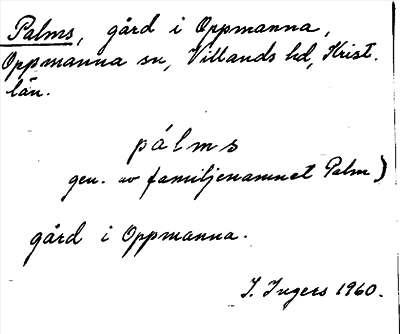 Palms, gård i Oppmanna,
Oppmanna sn, Villands hd, Krist.
län.
pálms
gen. av familjenamnet Palm)
gård i Oppmanna.
I. Ingers 1960.